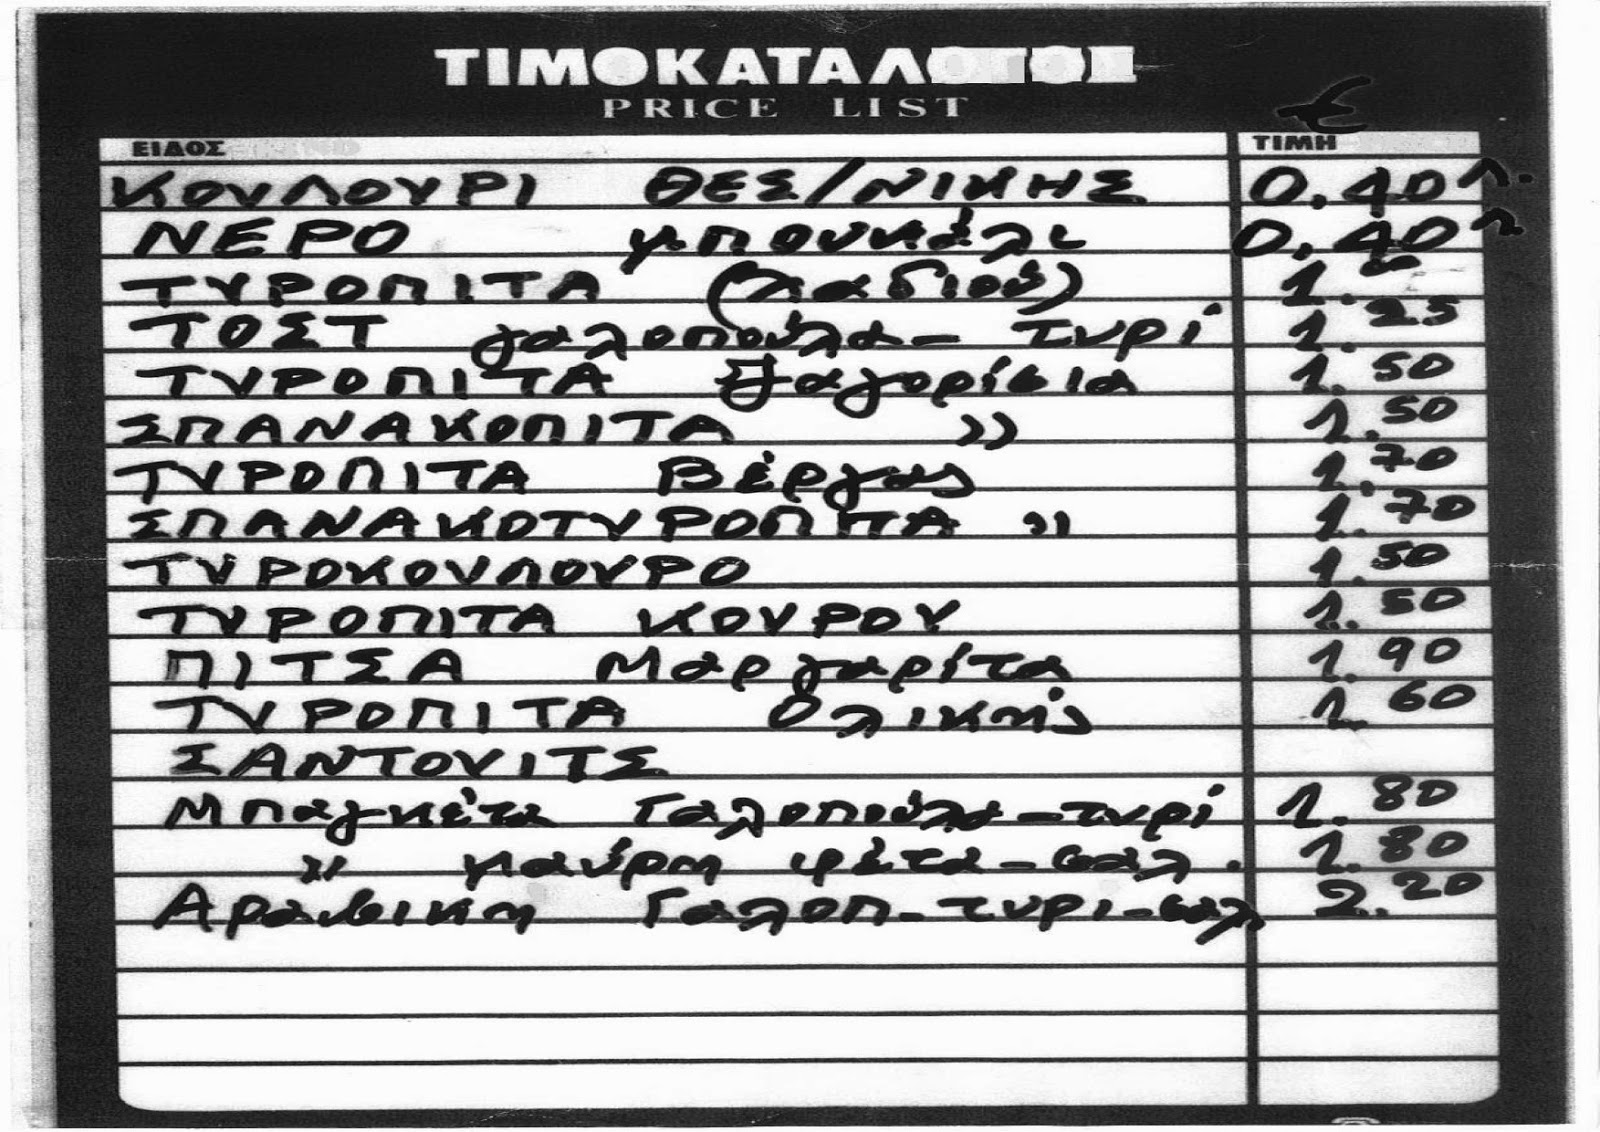 ΤΙΜΟΚΑΤΑΛΟΓΟΣ
PRICE LIST
€
ΕΙΔΟΣ ΤΙΜΗ
ΚΟΥΛΟΥΡΙ ΘΕΣ/ΝΙΚΗΣ 0,40 λ.
ΝΕΡΟ μπουκάλι 0,40 λ
ΤΥΡΟΠΙΤΑ (λαδιού) 1.
ΤΟΣΤ γαλοπούλα - τυρί 1.25
ΤΥΡΟΠΙΤΑ Ζαγορίσια 1.50
ΣΠΑΝΑΚΟΠΙΤΑ » 1.50
ΤΥΡΟΠΙΤΑ Βέργας 1.70
ΣΠΑΝΑΚΟΤΥΡΟΠΙΤΑ » 1.70
ΤΥΡΟΚΟΥΛΟΥΡΟ 1.50
ΤΥΡΟΠΙΤΑ ΚΟΥΡΟΥ 1.50
ΠΙΤΣΑ Μαργαρίτα 1.90
ΤΥΡΟΠΙΤΑ Ολικής 1.60
ΣΑΝΤΟΥΙΤΣ
Μπαγκέτα Γαλοπούλα - τυρί 1.80
» μαύρη φέτα - σαλ. 1.80
Αραβικη Γαλοπ - τυρι - σαλ 2.20